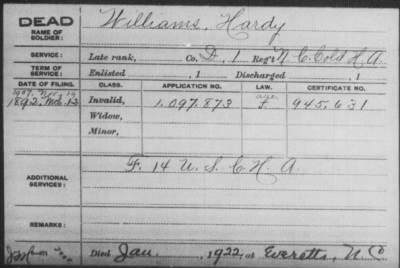 DEAD
NAME OF SOLDIER:
Williams, Hardy
SERVICE:
Late rank, Co. D, 1 Reg't N.C. Cold H.A.
TERM OF SERVICE:
Enlisted , 1 Discharged , 1
DATE OF FILING. CLASS. APPLICATION NO. LAW. CERTIFICATE NO.
1907, Nov. 19 age
1892, Mch 12 Invalid, 1.097.873 F 945.631
Widow,
Minor,
ADDITIONAL SERVICES:
F. 14 U.S.C.H.A.
REMARKS:
Died Jan. , 1922, at Everetts, N.C.